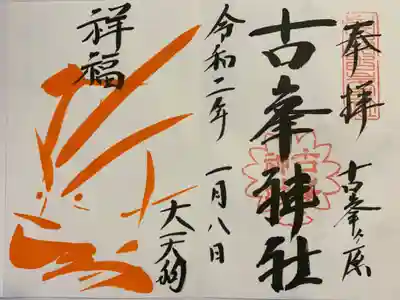 奉拝
古峯ヶ原
古峯神社
令和二年
一月八日
大天狗
祥福